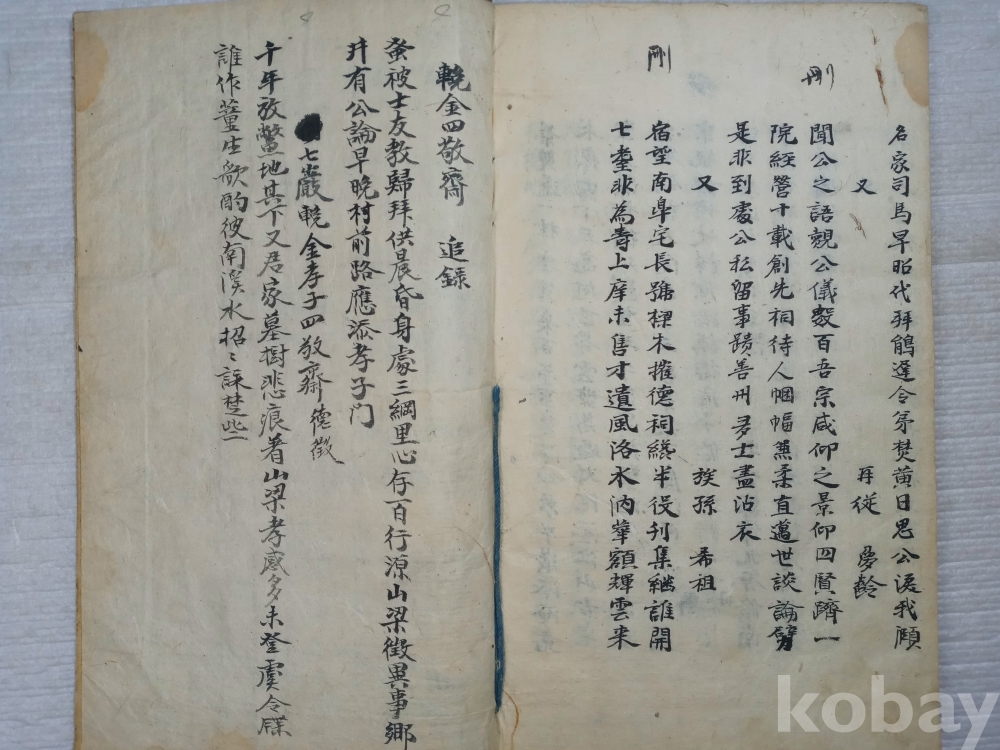 名家司馬早昭代拜鵑遑令
焚黃日思公淚我顧
又 再從 夢齡
刪
聞公之語覿公儀毅百吾宗咸仰之景仰四賢躋一
院經營十載創先祠待人悃愊兼柔直邁世談論劈
是非到處公私留事蹟善州多士盡沾衣
又 族孫 希祖
刪
宿望南皐宅長號樑木摧德祠繕半役刊集繼誰開
七耋非為壽上庠未售才遺風洛水汭華額輝雲來
輓金四敬齋 追錄
蚤被士友教歸拜供晨昏身處三綱里心存百行源山梁徵異事鄕
井有公論早晚村前路應添孝子門
七巖輓金孝子四敬齋 德徵
千年放鱉地其下又居家墓樹悲痕著山梁孝感多未登虞令牒
誰作董生歌酌彼南溪水招〻誄楚些
kobay